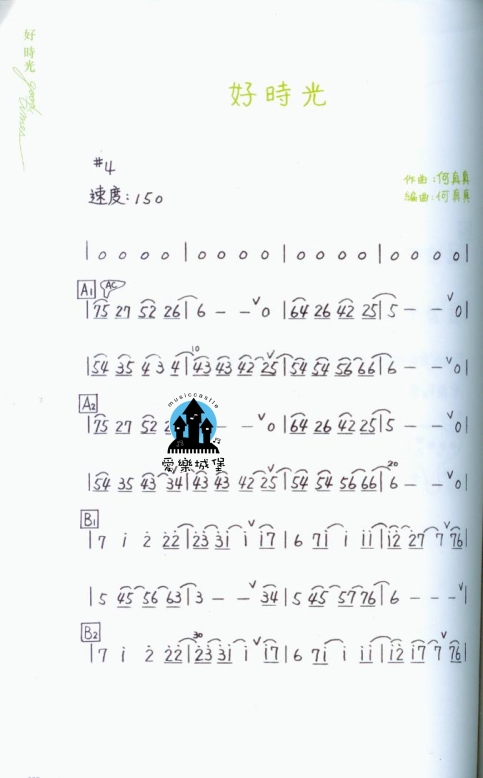 好時光
good times
好時光
#4
速度:150
作曲:何真真
編曲:何真真
| 0 0 0 0 | 0 0 0 0 | 0 0 0 0 | 0 0 0 0 |
A1 AC
| 75 27 52 26 | 6 - - ∨ 0 | 64 26 42 25 | 5 - - ∨ 0 |
10
| 54 35 4 3 4 | 43 43 42 ∨ 25 | 54 54 56 66 | 6 - - ∨ 0 |
musiccastle
A2
| 75 27 52 - - ∨ 0 | 64 26 42 25 | 5 - - ∨ 0 |
愛樂城堡
20
| 54 35 43 34 | 43 43 42 ∨ 25 | 54 54 56 66 | 6 - - ∨ 0 |
B1
| 7 i 2̇ 2̇2̇ | 2̇3̇ 3̇i i ∨ i7 | 6 7i i ii | i2̇ 2̇7 7 ∨ 76 |
| 5 45 56 63 | 3 - - ∨ 34 | 5 45 57 76 | 6 - - - ∨ |
B2
30
| 7 i 2̇ 2̇2̇ | 2̇3̇ 3̇i i ∨ i7 | 6 7i i ii | i2̇ i7 7 ∨ 76 |